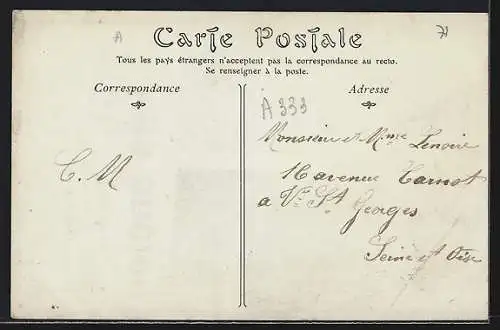 A
71
Carte Postale
Tous les pays étrangers n'acceptent pas la correspondance au recto.
Se renseigner à la poste.
Correspondance
Adresse
A 333
C. M
Monsieur et Mme Lenoire
16 avenue Carnot
a Ve St Georges
Seine et Oise